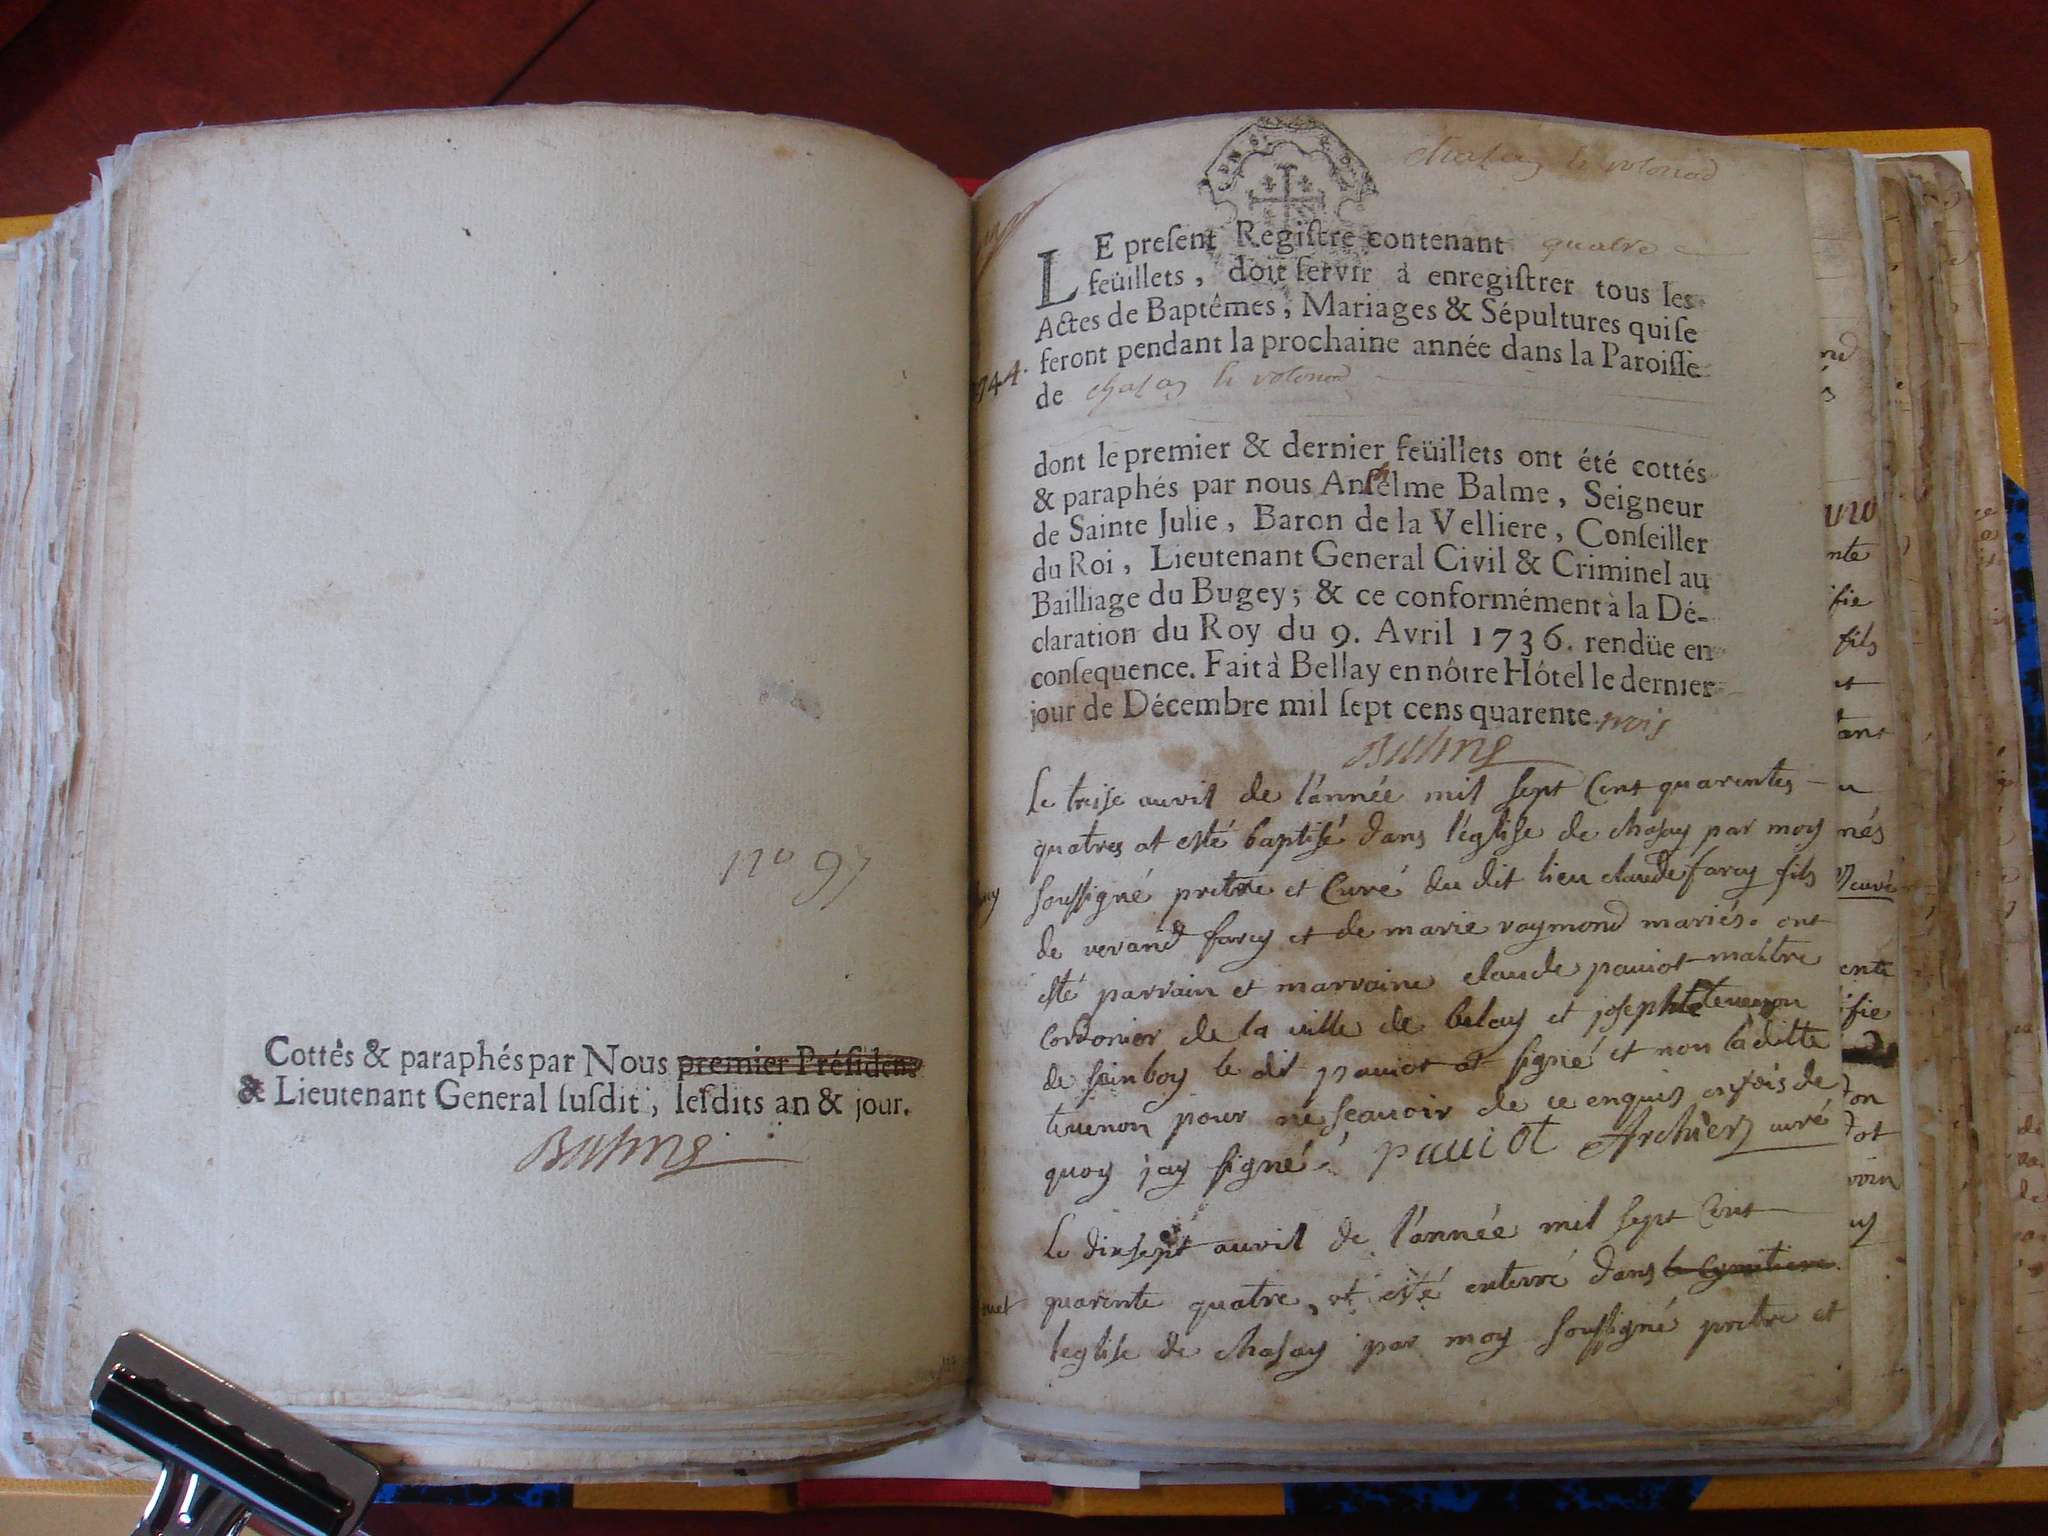 no 97
Cottés & paraphés par Nous premier Présidens
& Lieutenant General susdit, lesdits an & jour.
Balme
chasay le
LE present Registre contenant quatre
feüillets, doit servir à enregistrer tous les
Actes de Baptêmes, Mariages & Sépultures qui se
feront pendant la prochaine année dans la Paroisse
1744.
de chasay le
dont le premier & dernier feüillets ont été cottés
& paraphés par nous Anthelme Balme, Seigneur
de Sainte Julie, Baron de la Velliere, Conseiller
du Roi, Lieutenant General Civil & Criminel au
Bailliage du Bugey; & ce conformément à la Dé-
claration du Roy du 9. Avril 1736. rendüe en
consequence. Fait à Bellay en nôtre Hôtel le dernier
jour de Décembre mil sept cens quarente trois
Balme
Le treise auvril de l'année mil sept Cent quarentes
quatres at esté baptisé dans l'église de chasay par moy
soussigné pretre et Curé du dit lieu claude farcy fils
de verand farcy et de marie raymond mariés. ont
esté parrain et marraine claude pauiot maître
Cordonier de la ville de belay et josephte teuenon
de le dit pauiot at signé et non laditte
teuenon pour ne scauoir de ce enquis en fois de
quoy j'ay signé. pauiot Archier curé
Le dixsept auvril de l'année mil sept Cent
quarente quatre, at esté enterré dans le Cymitiere
leglise de chasay par moy soussigné pretre et